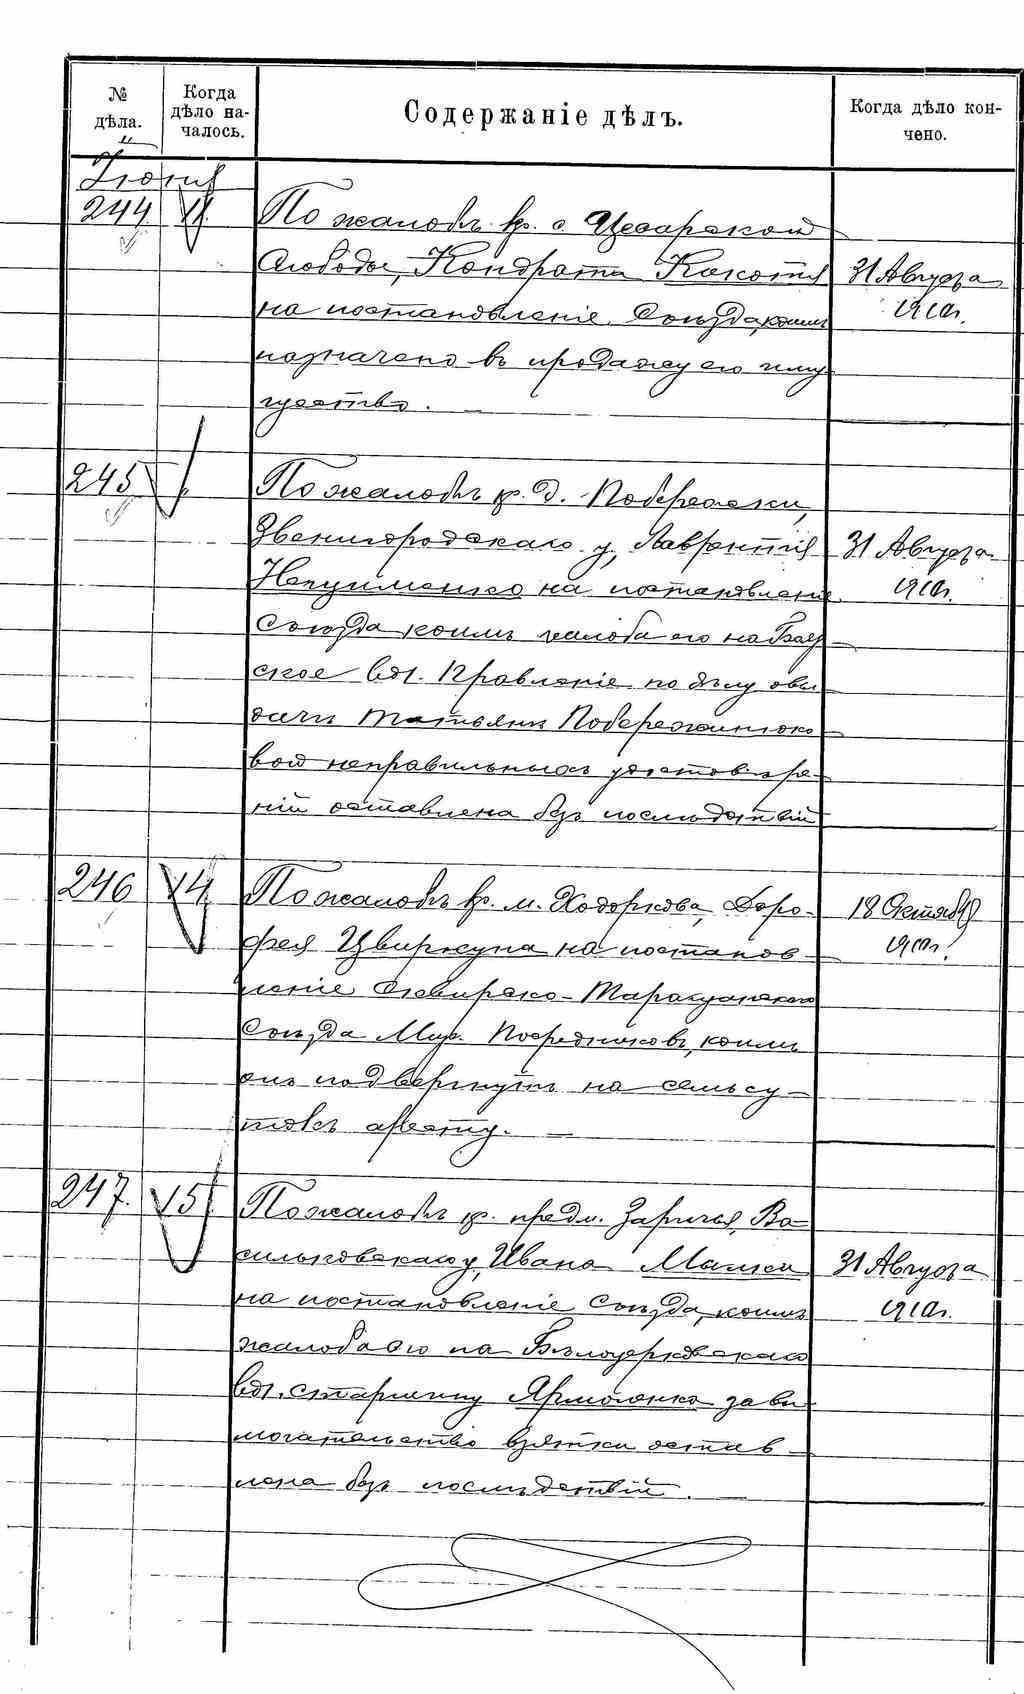 № дѣла.
Когда дѣло на-
чалось.
Содержаніе дѣлъ.
Когда дѣло кон-
чено.
244 11. По жалобѣ кр. с. Цесарской
Слободы, Кондрата Кокотия 31 Августа
на постановленіе Съѣзда, коимъ 1910г.
назначено въ продажу его иму
щество.
245 По жалобѣ кр. д. Побережки,
Звенигородскаго у, Лаврентія 31 Августа
на постановленіе 1910г.
Съѣзда коимъ жалоба его на
ское вол. Правленіе по дѣлу о вы
дачи Татьянѣ Побережнюко
вой неправильныхъ удостовѣре
ній оставлена безъ послѣдствій
246 14 По жалобѣ кр. м. Ходоркова, Доро- 18 Октября
фея Цвиркуна на постанов 1910г.
леніе Сквирско-Таращанскаго
Съѣзда Мир. Посредниковъ, коимъ
онъ подвергнутъ на семь су-
токъ аресту.
247. 15 По жалобѣ кр. предм. Заричья, Ва=
сильковскаго у, Ивана 31 Августа
на постановленіе Съѣзда, коимъ 1910г.
жалоба его на Бѣлоцерковскаго
вол. старшину Ярмоленко за вы
могательство взятки остав
лена безъ послѣдствій.